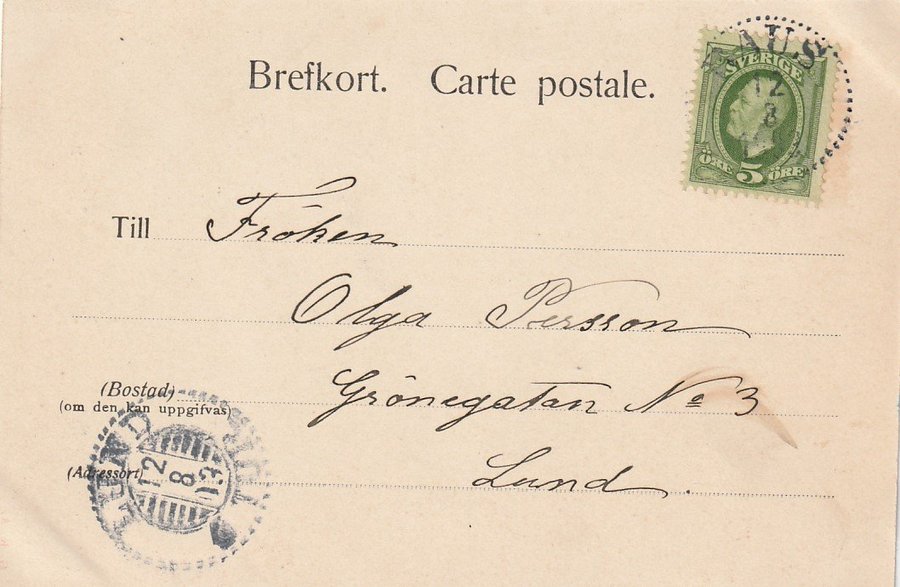 Brefkort. Carte postale.
SVERIGE
12
8
ÖRE 5 ÖRE
Till Fröken
Olga Persson
(Bostad)
(om den kan uppgifvas)
Grönegatan No 3
(Adressort)
Lund.
LUND
12
8